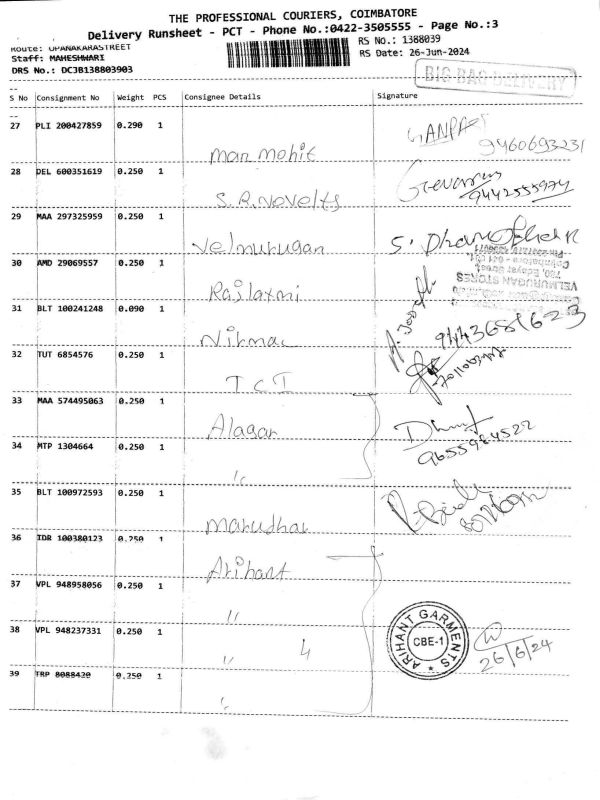 THE PROFESSIONAL COURIERS, COIMBATORE
Delivery Runsheet - PCT - Phone No.:0422-3505555 - Page No.:3
Route: OPANAKARASTREET
RS No.: 1388039
Staff: MAHESHWARI
RS Date: 26-Jun-2024
DRS No.: DCJB138803903
BIG BAG DELIVERY
S No Consignment No Weight PCS Consignee Details Signature
27 PLI 200427859 0.290 1
Man mohit
9460693231
28 DEL 600351619 0.250 1
S.R. Novelts
9442555974
29 MAA 297325959 0.250 1
Velmurugan
VELMURUGAN STORES
30 AMD 29069557 0.250 1
Rajlaxmi
31 BLT 100241248 0.090 1
Nirmal
32 TUT 6854576 0.250 1
T C I
33 MAA 574495063 0.250 1
Alagar
34 MTP 1304664 0.250 1
"
35 BLT 100972593 0.250 1
Marudhar
36 IDR 100380123 0.250 1
Arihant
37 VPL 948958056 0.250 1
"
38 VPL 948237331 0.250 1
" 4
ARIHANT GARMENTS
CBE-1
26/6/24
39 TRP 8088420 0.250 1
"